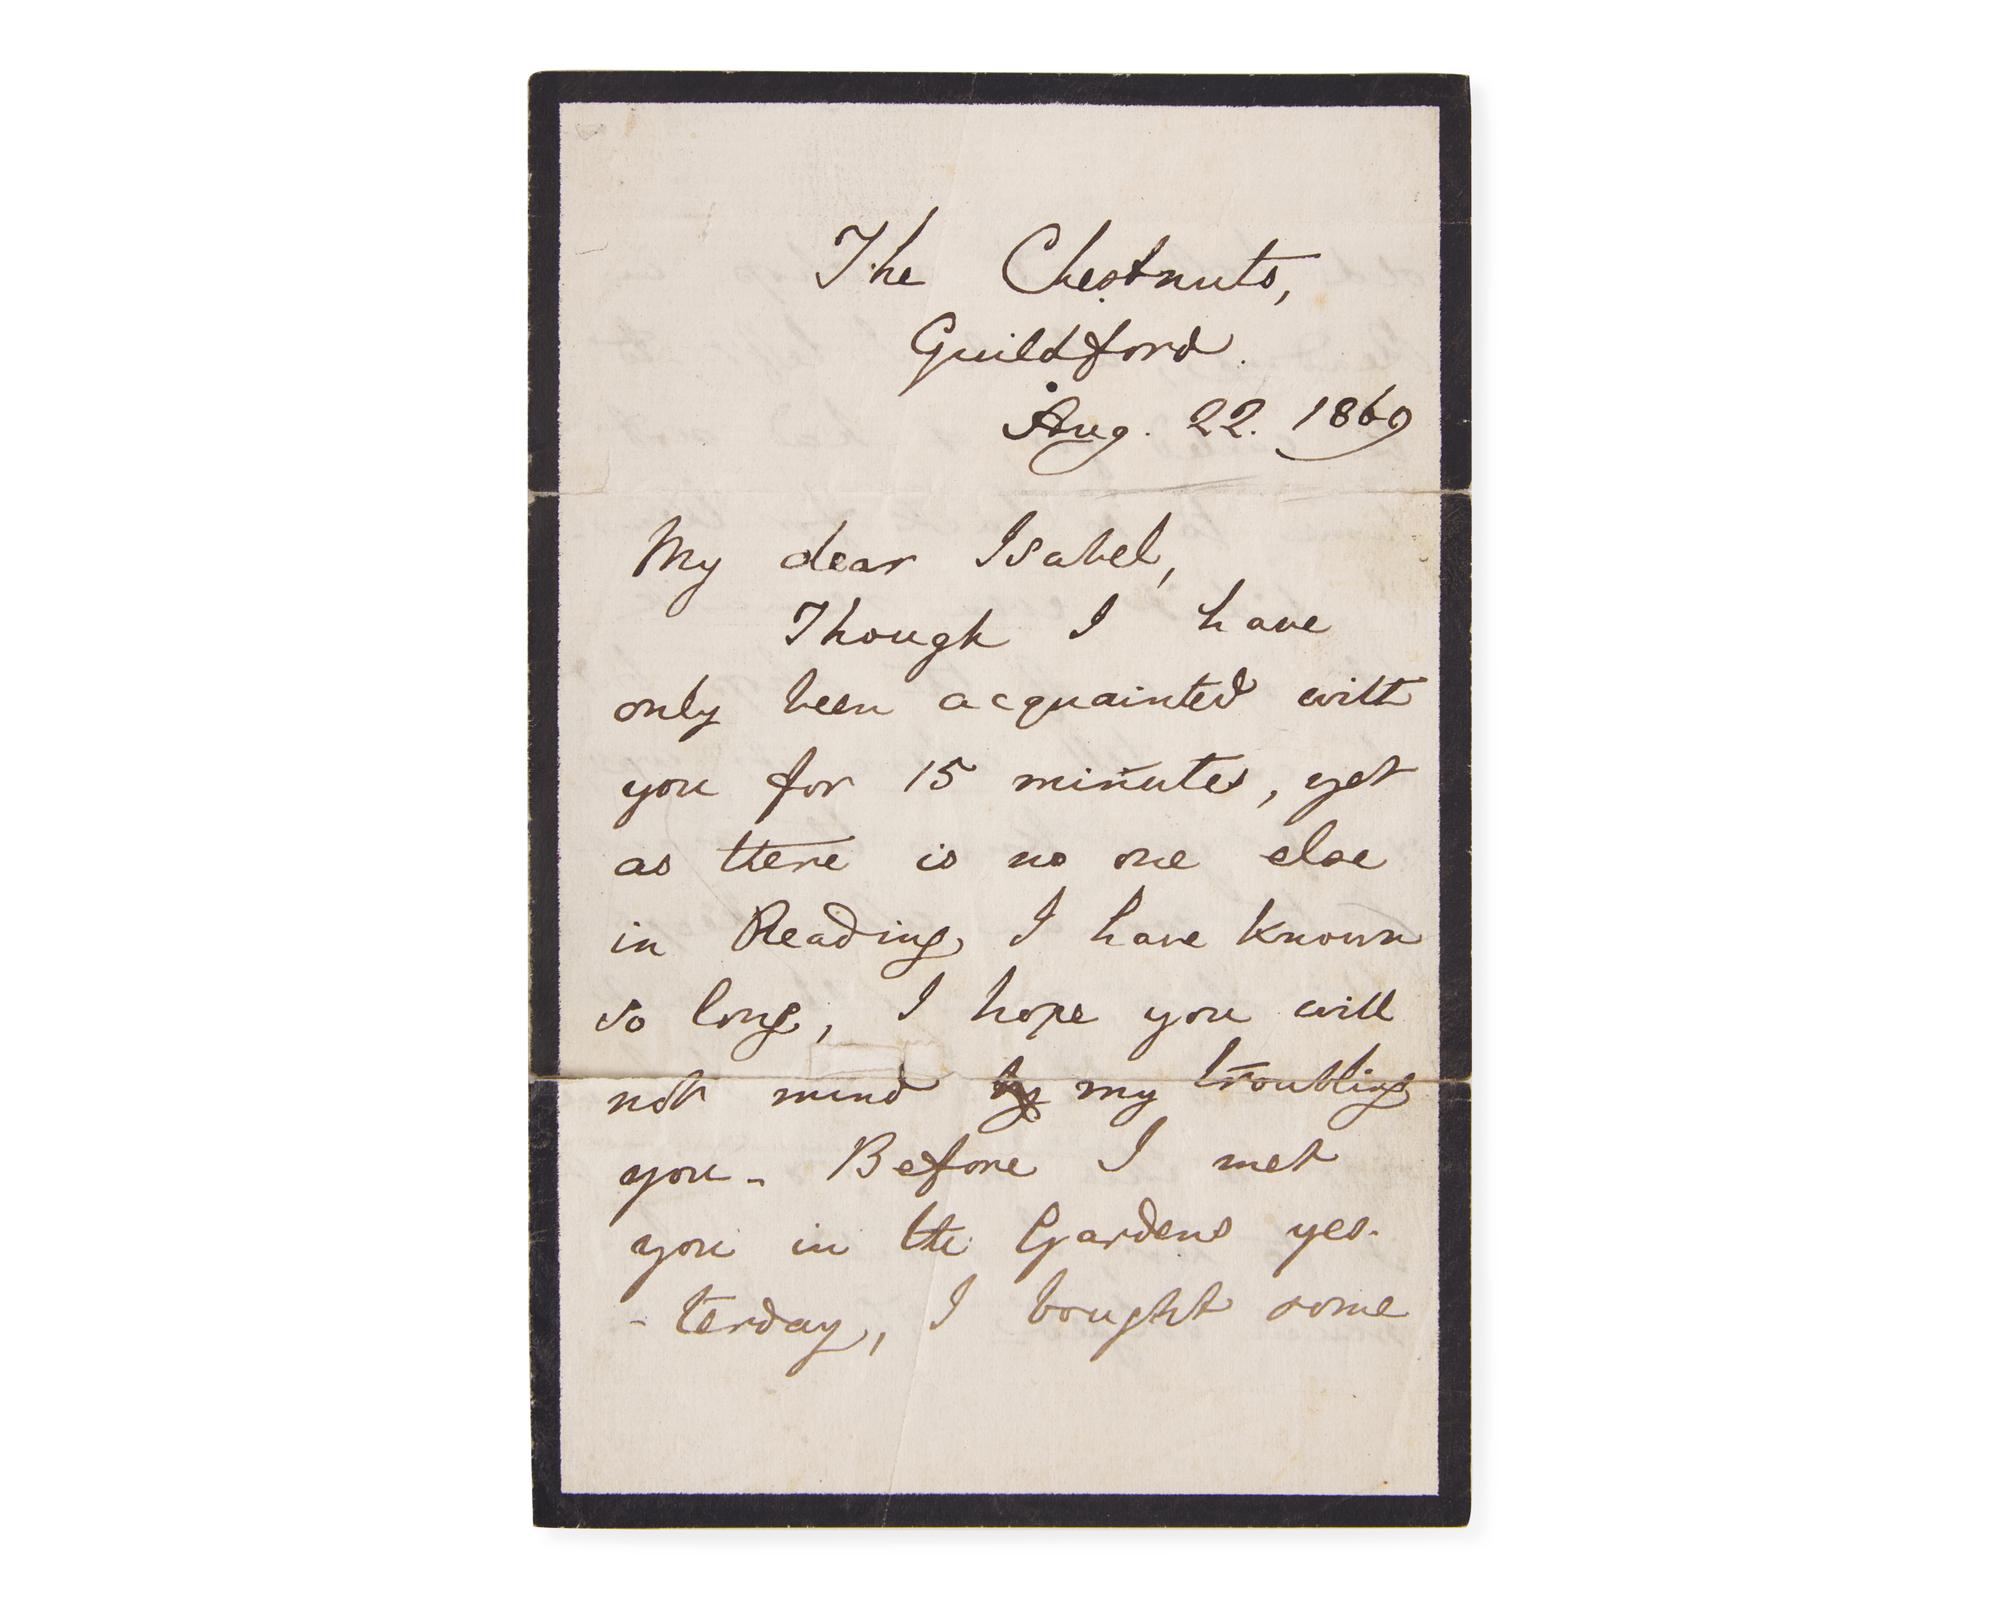 The Chestnuts,
Guildford.
Aug. 22. 1869
My dear Isabel,
Though I have
only been acquainted with
you for 15 minutes, yet
as there is no one else
in Reading I have known
so long, I hope you will
not mind my troubling
you - Before I met
you in the Gardens yes-
- terday, I bought some